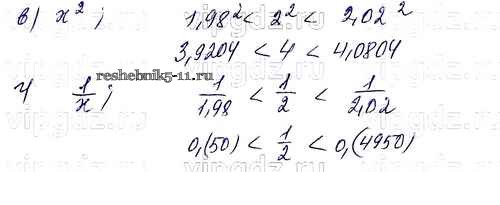 в) x²; 1,98² < 2² < 2,02²
3,9204 < 4 < 4,0804
reshebnik5-11.ru
г) 1/x; 1/1,98 < 1/2 < 1/2,02
0,(50) < 1/2 < 0,(4950)
vipgdz.ru